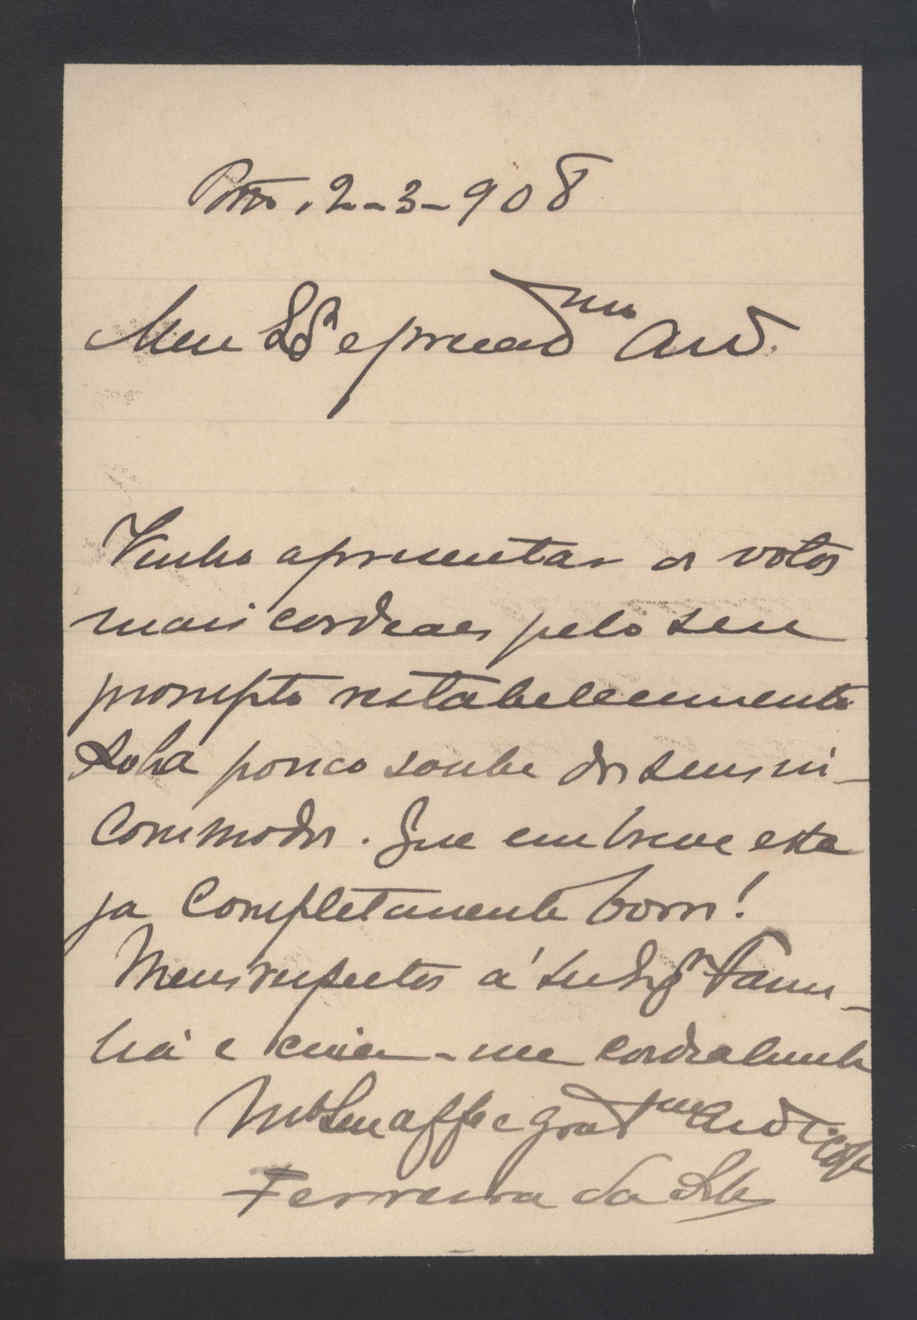 Porto, 2-3-908
Meu e prezad mo Am.
Venho apresentar os votos
mais cordeaes pelo seu
prompto restabelecimento
Só ha pouco soube dos seus in-
commodos. Que em breve este-
ja completamente bom!
Meus respeitos á sua Fami-
lia e creia-me cordealmente
Mto Seu affo e grat mo
Ferreira da Silva